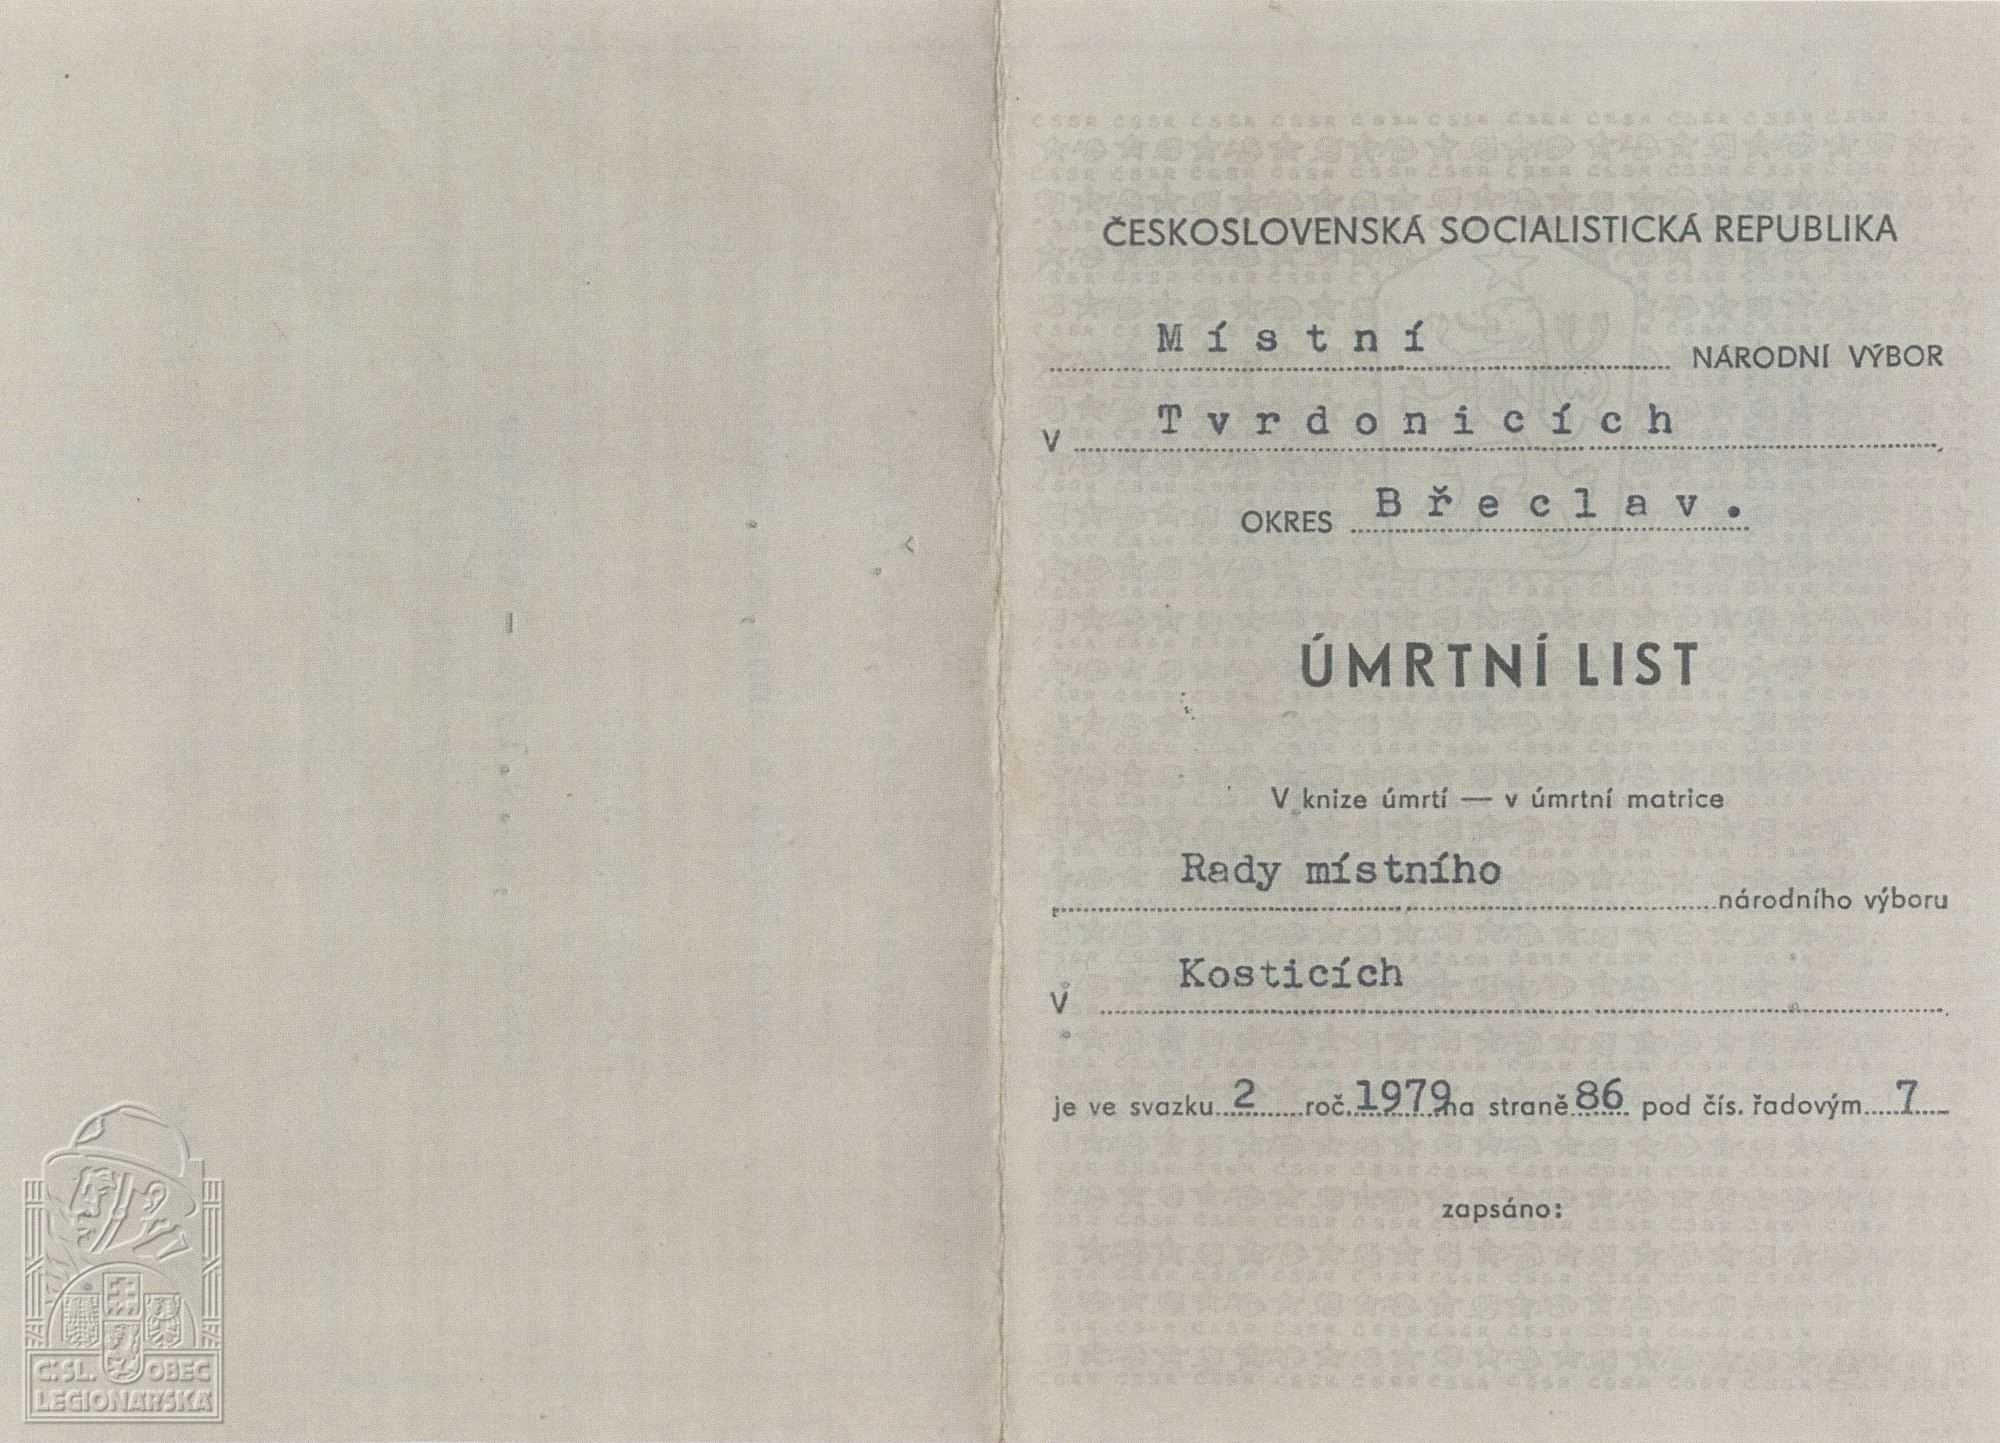 ČESKOSLOVENSKÁ SOCIALISTICKÁ REPUBLIKA
Místní NÁRODNÍ VÝBOR
V Tvrdonicích
OKRES Břeclav.
ÚMRTNÍ LIST
V knize úmrtí — v úmrtní matrice
Rady místního národního výboru
v Kosticích
je ve svazku 2 roč. 1979 na straně 86 pod čís. řadovým 7
zapsáno:
Č.SL. OBEC
LEGIONÁŘSKÁ